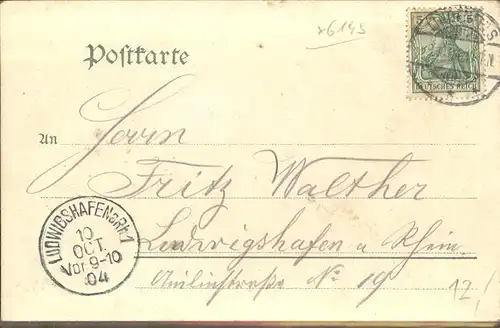 x6145
Postkarte
DEUTSCHES REICH
An
Herrn
Fritz Walther
Ludwigshafen a Rhein
Anilinstraße No 19
12.
LUDWIGSHAFEN a. Rh. 1
10
OCT.
Vor 9-10
04